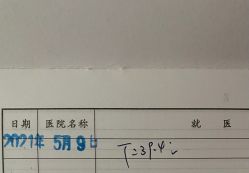 日期 医院名称 就医
2021年 5月9日 T：39.4℃